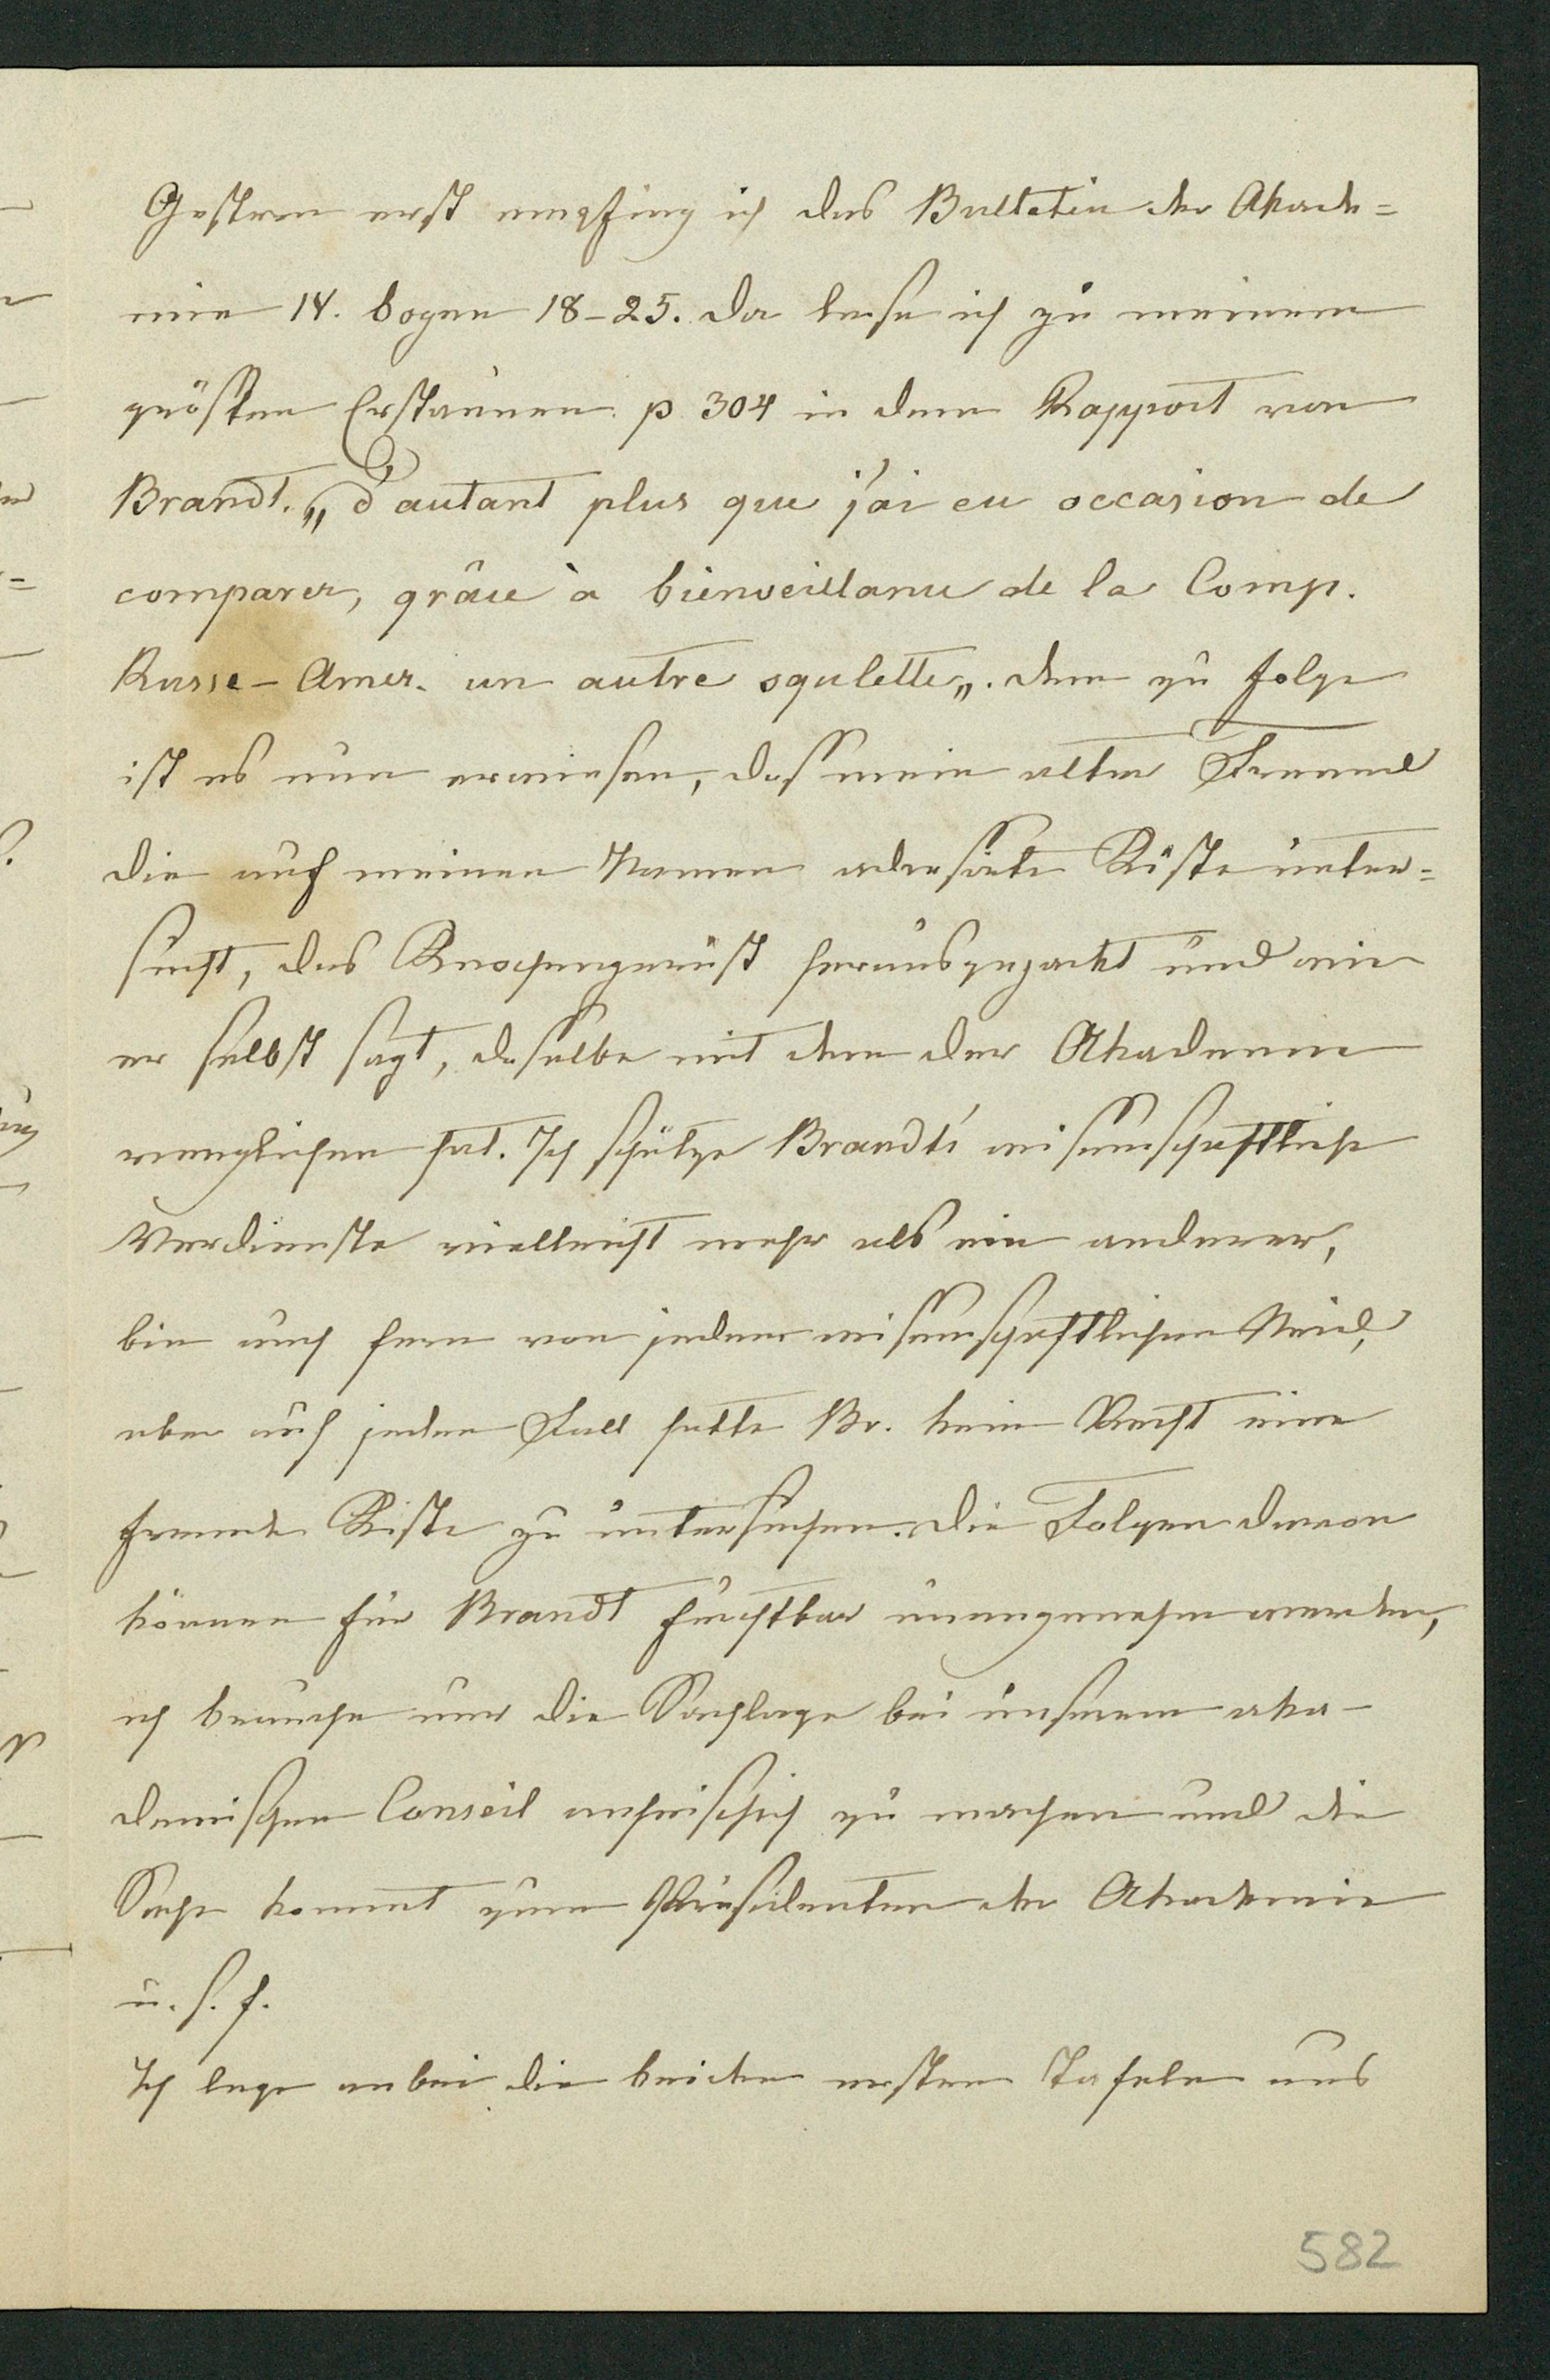 Gestern erst empfing ich das Bulletin der Akade=
mie 14. bogen 18-25. Da lese ich zu meinem
grösten Erstaunen p 304 in dem Rapport von
Brandt. „d'autant plus que j'ai eu occasion de
comparer, grâce à bienveillance de la Comp.
Russe-Amer. un autre squlette„. Dem zu folge
ist es nun erwiesen, daß mein alter Freund
die auf meinen Namen adressirte Kiste unter=
sucht, das Knochengerüst herausgepackt und wie
er selbst sagt, dasselbe mit dem der Akademie
verglichen hat. Ich schätze Brandts wissenschaftliche
Verdienste vielleicht mehr als ein anderer,
bin auch fern von jedem wissenschaftlichen Neid,
aber auf jeden Fall hatte Br. kein Recht eine
fremde Kiste zu untersuchen. Die Folgen davon
können für Brandt furchtbar unangenehm werden,
ich brauche nur die Sachlage bei unserem aka-
demischen Conseil anheischich zu machen und die
Sache kommt zum Präsidenten der Akademie
u. s. f.
Ich lege anbei die beiden ersten Tafeln aus
582